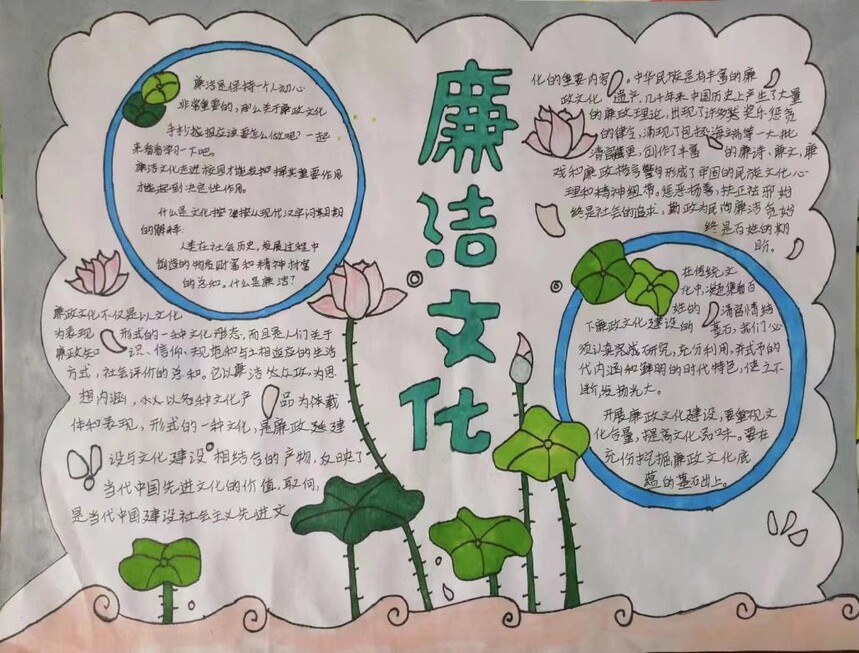 廉洁文化
廉洁是保持一个人动心
非常重要的，那么关于廉政文化
手抄报现在该要怎么做呢？一起
来看看学习一下吧。
廉洁文化走进校园才能发挥探其重要作用
才能起到决定性作用。
什么是文化按 按从现代汉字词期期
的解释：
人类在社会历史，发展过程中
创造的物质财富和精神财富
的总和。什么是廉洁？
廉政文化不仅是以文化
为表现 形式的一种文化形态，而且是人们关于
廉政知 识、信仰、规范和与之相适应的生活
方式，社会评价的总和。它以廉洁从政为思
想内涵，以各种文化产 品为体载
体和表现，形式的一种文化，是廉政建
设与文化建设 相结合的产物，反映了
当代中国先进文化的价值，取向，
是当代中国建设社会主义先进文
化的重要内容。中华民族是有丰富的廉
政文化 遗产，几千年来中国历史上产生了大量
的廉政理论，出现了许多 尧
的健全，涌现了包拯海瑞等一大批
清官 更，创作了丰富 的廉诗，廉文，廉
戏和廉政格言警句形成了中国的民族文化心
理和精神纽带。惩恶扬善，扶正祛邪始
终是社会的追求，勤政为民尚廉洁 始
终是百姓的期
盼。
在传统文
化中，凝聚集着百
姓的 清官情结
下廉政文化建设的 基石，我们必
须认真完成研究，充分利用，并式予的
代内涵和鲜明的时代特色，使之不
断，发扬光大。
开展廉政文化建设，要重视文
化含量，提高文化品味。要在
充份挖掘廉政文化底
蕴的基础上。